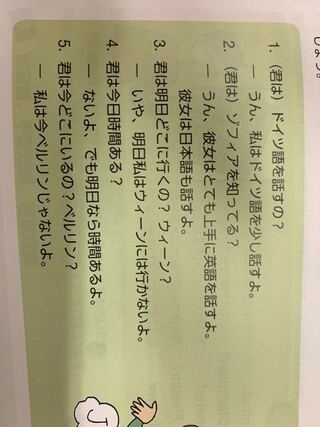 しょう。
1. (君は) ドイツ語を話すの?
— うん、私はドイツ語を少し話すよ。
2. (君は) ソフィアを知ってる?
— うん、彼女はとても上手に英語を話すよ。
彼女は日本語も話すよ。
3. 君は明日どこに行くの? ウィーン?
— いや、明日私はウィーンには行かないよ。
4. 君は今日時間ある?
— ないよ、でも明日なら時間あるよ。
5. 君は今どこにいるの? ベルリン?
— 私は今ベルリンじゃないよ。
J